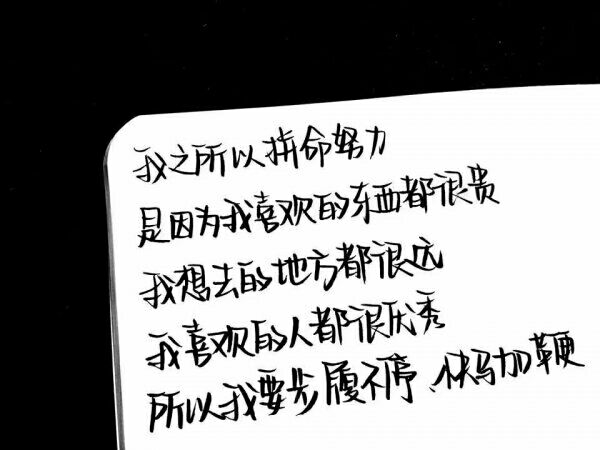 我之所以拼命努力
是因为我喜欢的东西都很贵
我想去的地方都很远
我喜欢的人都很优秀
所以我要步履不停、快马加鞭